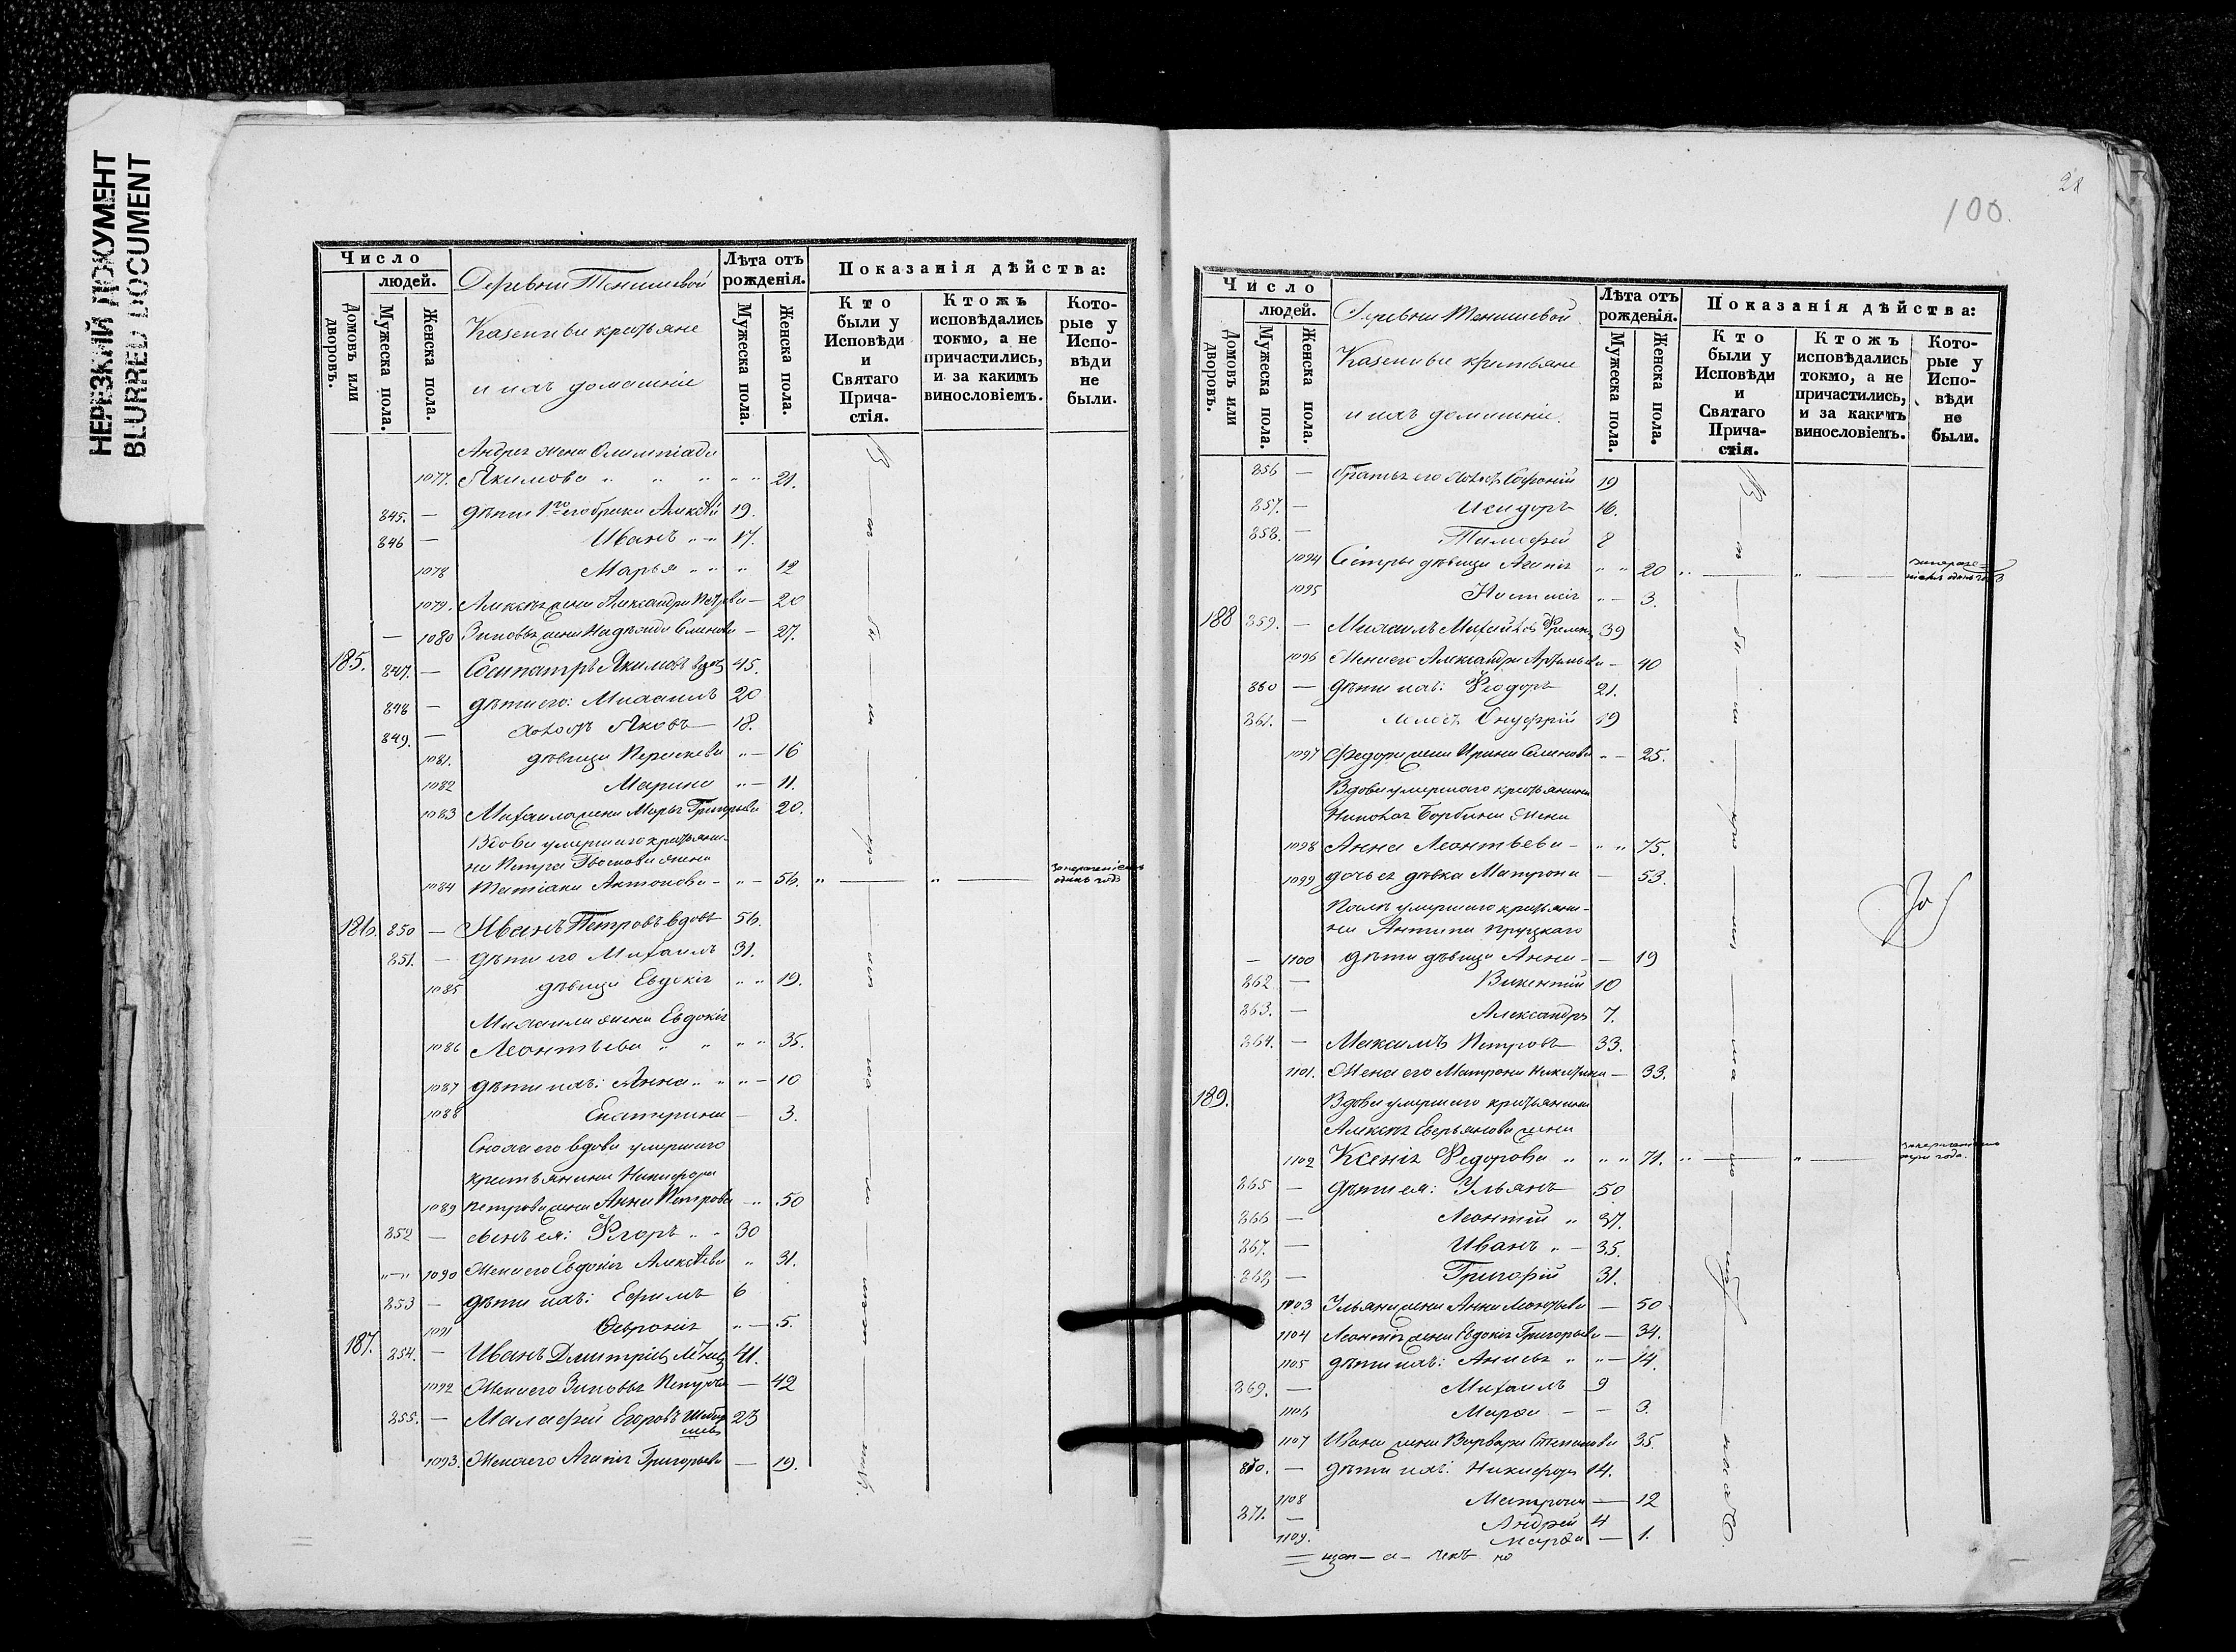 НЕРЕЗКИЙ ДОКУМЕНТ
BLURRED DOCUMENT
Число
людей.
Домовъ или дворовъ.
Мужеска пола.
Женска пола.
Деревни Тенишевой
Казенныи крестьяне
и ихъ домашніи
Лѣта отъ рожденія.
Мужеска пола.
Женска пола.
Показанія дѣйства:
Кто были у Исповѣди и Святаго Причастія.
Ктожъ исповѣдались токмо, а не причастились, и за какимъ винословіемъ.
Которые у Исповѣди не были.
Андрея жена Олимпіада
1077. Якимова " " " " " 21.
845. — дѣти 1го его брака Алексѣй 19.
846 — Иванъ " 17.
1078 Марья " " " 12
1079. Алексѣя жена Александра Петрова — 20
— 1080 Зиновья жена Надежда Семенова — 27.
185. 847. — Сосипатръ Якимовъ вдовъ 45.
848 — дѣти его: Михаилъ 20
849. — Яковъ — 18.
1081. дѣвица Перасковья " — 16
1082 Марина " — 11.
1083 Михаила жена Марья Григорьева 20.
Вдова умершаго крестьянина Петра жена
1084 Татіана Антонова — " — 56. " — " — одинъ годъ
186. 850 — Иванъ Петровъ вдовъ 56.
851. — дѣти его Михаилъ 31.
1085 дѣвица Евдокія " " 19.
Михаила жена Евдокія
1086 Леонтьева " " " " 35.
1087 дѣти ихъ: Анна " " " — 10
1088 Екатерина — 3.
Сноха его вдова умершаго
крестьянина Никифора
1089 Петрова жена Анна Петрова — " 50
852 — сынъ ея: Егоръ " " 30
" — " 1090 Жена его Евдокія Алексѣева " 31.
853 — дѣти ихъ: Ефимъ 6
1091 Февронія " — 5.
187. 854. — Иванъ Дмитріевъ 41.
1092 Жена его Зиновья Петрова — 42
855. — Малафей Егоровъ 23
1093. Жена его Агапія Григорьева — 19.
28
100.
Число
людей.
Домовъ или дворовъ.
Мужеска пола.
Женска пола.
Деревни Тенишевой
Казенныи крестьяне
и ихъ домашніи.
Лѣта отъ рожденія.
Мужеска пола.
Женска пола.
Показанія дѣйства:
Кто были у Исповѣди и Святаго Причастія.
Ктожъ исповѣдались токмо, а не причастились, и за какимъ винословіемъ.
Которые у Исповѣди не были.
856 — Братья его Софроній 19
857. — Исидоръ 16.
858. — Тимофей 8
1094 Сестры дѣвица Агапія " " 20 " — " —
1095 " — 3.
188 859. — Михаилъ 39
1096 Жена его Александра Артемьева — 40
860 — дѣти ихъ: Феодоръ 21.
861. — Онуфрій 19
1097 Федора жена Ирина Семенова " — 25.
Вдова умершаго крестьянина
жена
1098 Анна Леонтьева — " " 75.
1099 дочь ея дѣвка Матрона — 53.
Послѣ умершаго крестьянина Антипа
— 1100 дѣти дѣвица Анна — — 19
862 — Викентій 10
863. — Александръ 7.
864. — Максимъ Петровъ — 33.
1101. Жена его Матрона Никитина — 33.
189. Вдова умершаго крестьянина
Алексѣя Аверьянова жена
1102 Ксенія Федорова " " " 71. " — " — три года.
865 — дѣти ея: Ульянъ 50
866 — Леонтій " 37.
867. — Иванъ " — 35.
868 — Григорій 31.
1103 Ульяна жена Анна Леонтьева — 50
1104 Леонтія жена Евдокія Григорьева — 34.
1105 дѣти ихъ: Анисья " " — 14.
869. — Михаилъ 9
1106 Марфа — — 3.
1107 Ивана жена Варвара Степанова 35.
870. — дѣти ихъ: Никифоръ 14.
1108 Матрона — 12
871. — Андрей 4
1109. Марфа — 1.